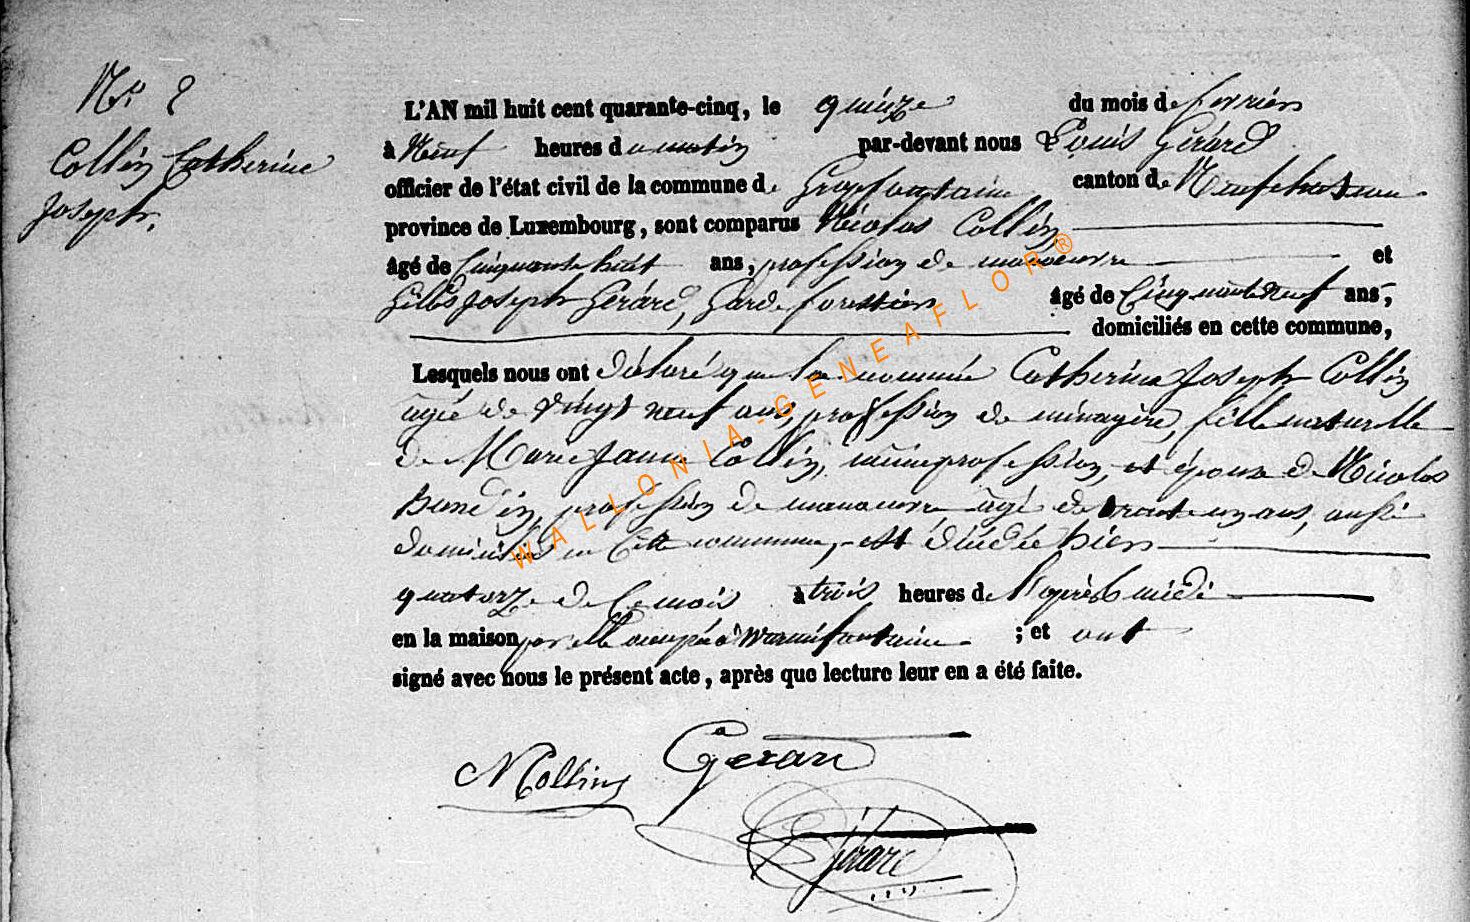 N° 2
Collin Catherine
Joseph.
L'AN mil huit cent quarante-cinq, le quinze du mois de fevrier
à Neuf heures du matin par-devant nous Louis Gérard
officier de l'état civil de la commune de Grapfontaine canton de Neufchateau
province de Luxembourg, sont comparus Nicolas Collin
âgé de Cinquante huit ans, profession de manoeuvre et
Gilles Joseph Gérard, Garde forestier âgé de Cinquante Neuf ans,
domiciliés en cette commune,
Lesquels nous ont déclaré que la nommée Catherine Joseph Collin
agée de vingt neuf ans, profession de ménagère, fille naturelle
de Marie Jeanne Collin, même profession, et épouse de Nicolas
profession de manoeuvre agé de trente un ans, aussi
domicilié en Cette commune, est décédée hier
quatorze de Ce mois à trois heures de l'après midi
en la maison par elle occupée à Warmifontaine ; et ont
signé avec nous le présent acte, après que lecture leur en a été faite.
NCollin Gerard
Gérard
WALLONIA-GENEAFLOR®